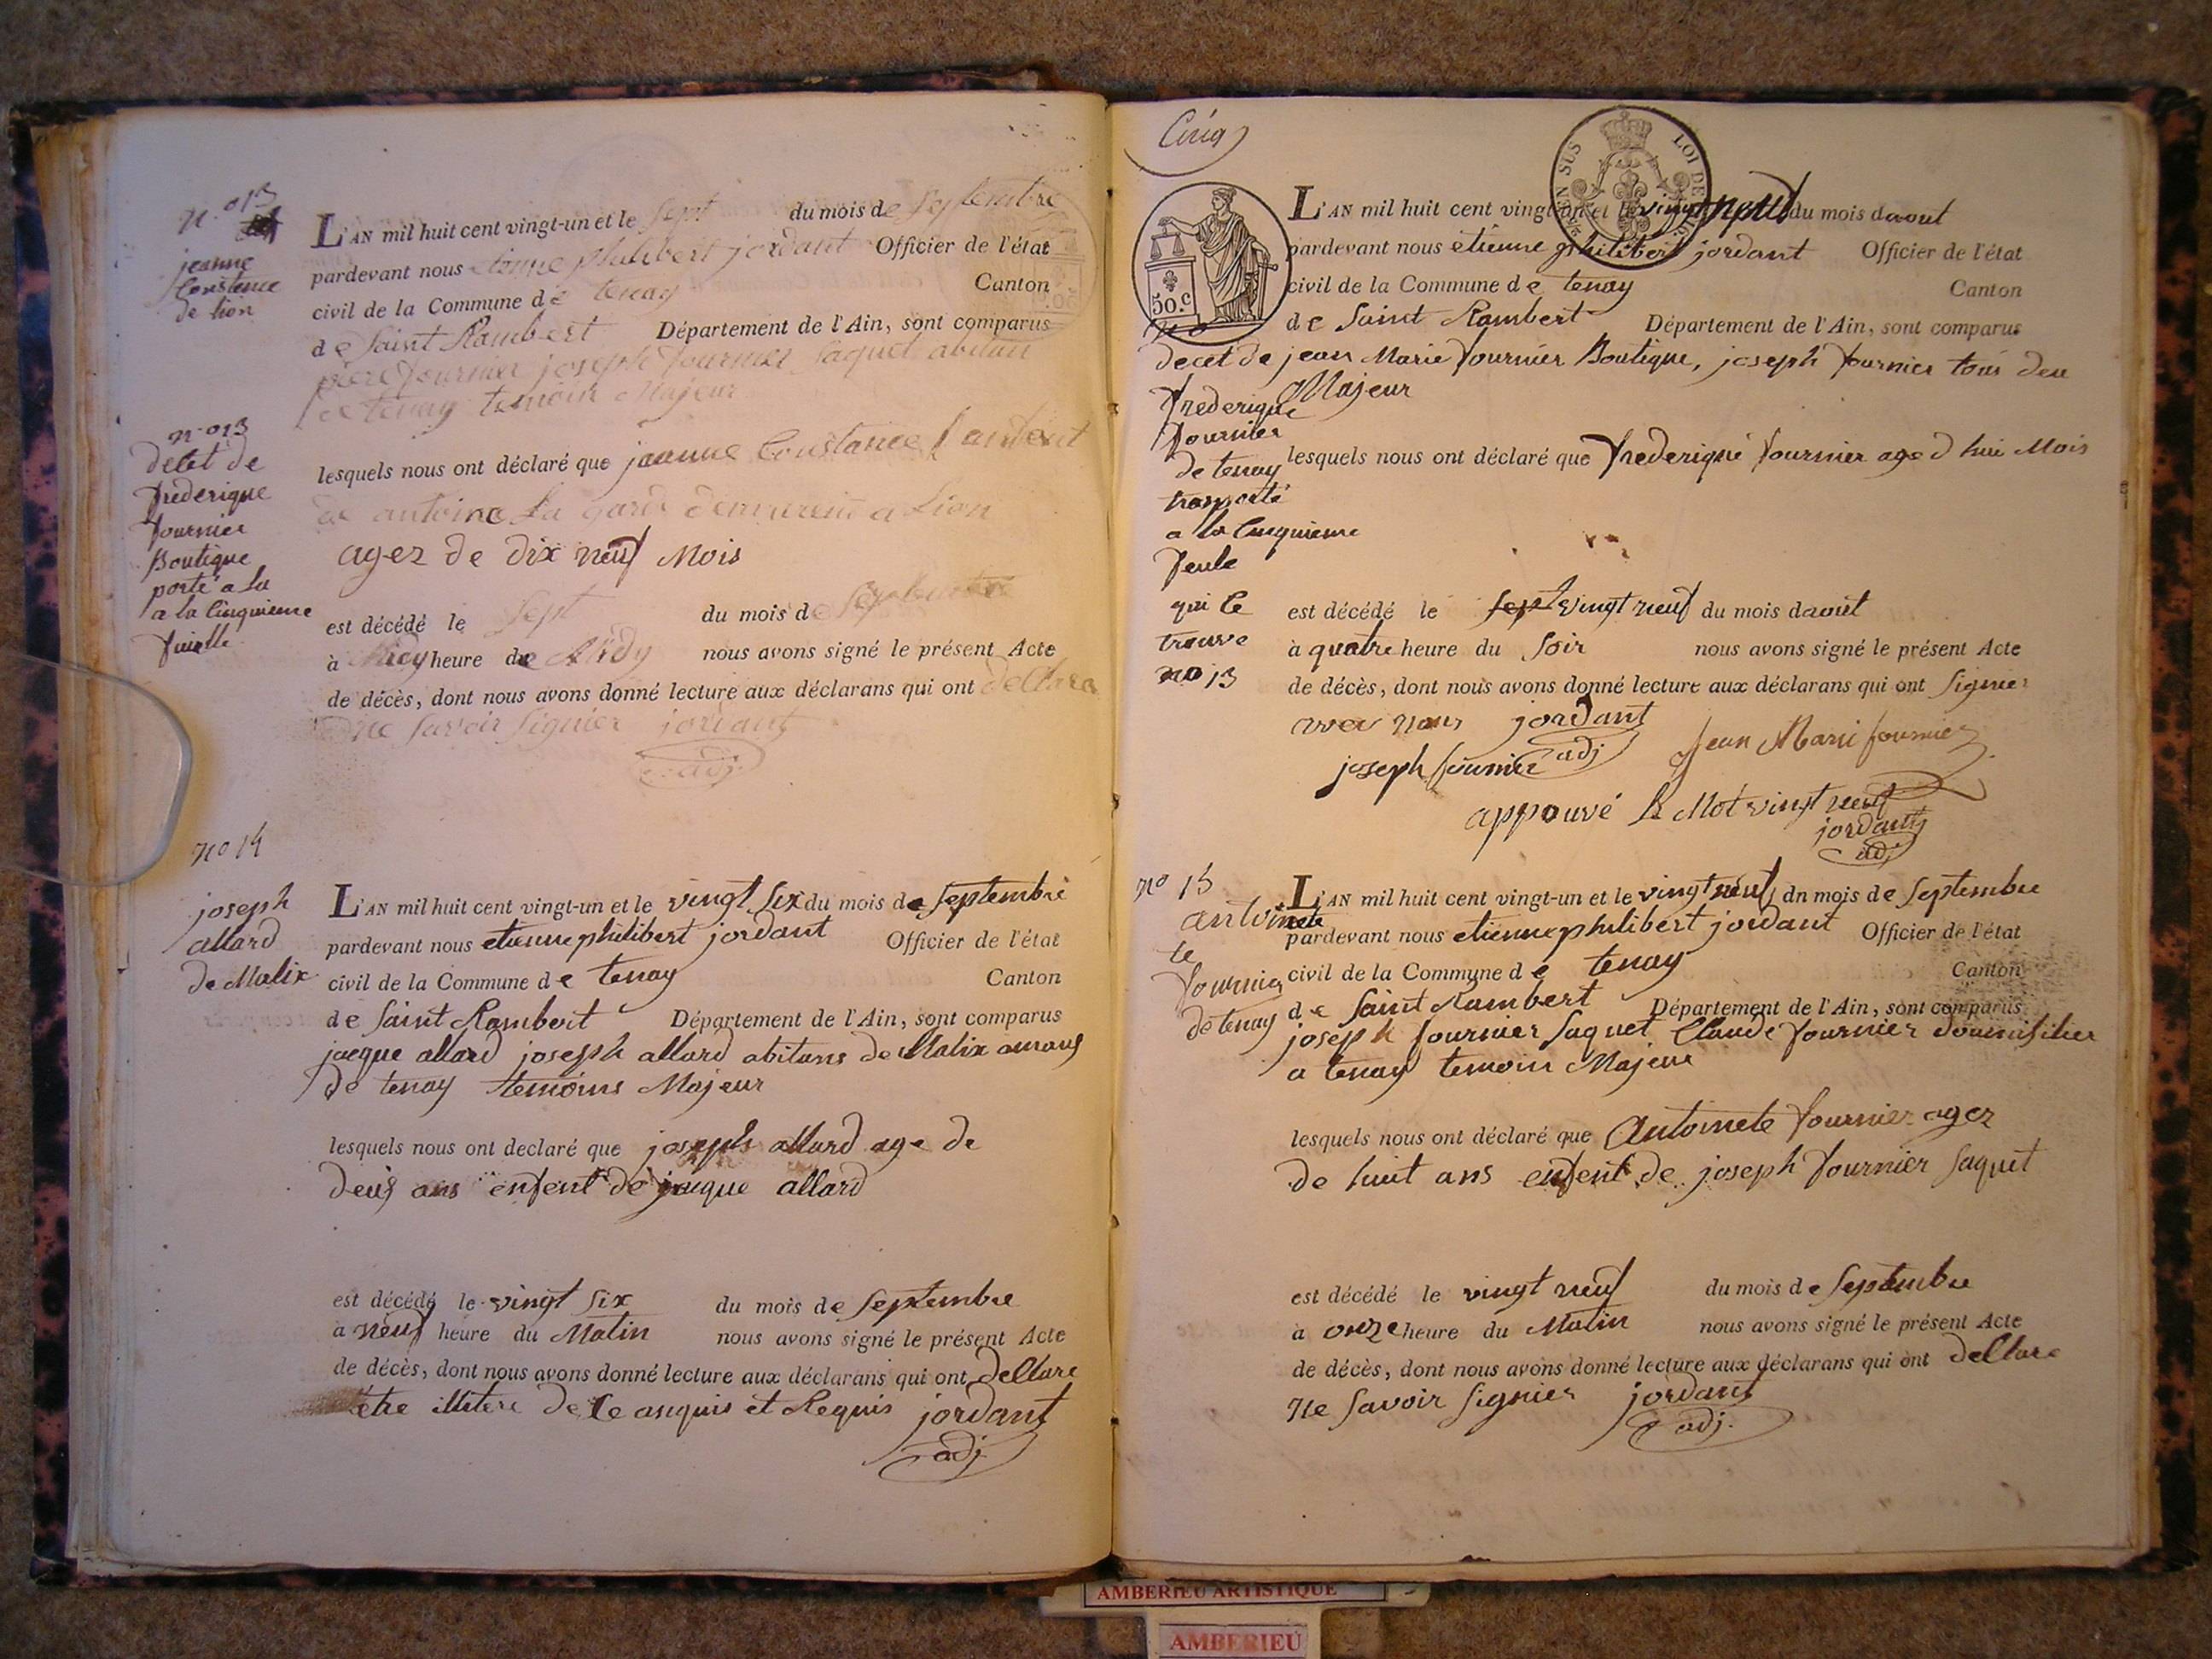 n.o 13
jeanne
Constence
de lion
L'AN mil huit cent vingt-un et le Sept du mois de Septembre
pardevant nous etienne philibert jordant Officier de l'état
civil de la Commune de tenay Canton
de Saint Rambert Département de l'Ain, sont comparus
piere fournier joseph fournier Saquet abitan
de tenay temoin Majeur
lesquels nous ont déclaré que jeanne Constance
de antoine la demurent a Lion
agez de dix neuf Mois
est décédé le Sept du mois de Septembre
à Midy heure de Midy nous avons signé le présent Acte
de décès, dont nous avons donné lecture aux déclarans qui ont dellare
ne Savoir Signier jordant
adj.
n.o 13
decet de
frederique
fournier
Boutique
porté a la
a la Cinquieme
fuielle
no 14
joseph
allard
de Malix
L'AN mil huit cent vingt-un et le vingt Six du mois de Septembre
pardevant nous etienne philibert jordant Officier de l'état
civil de la Commune de tenay Canton
de Saint Rambert Département de l'Ain, sont comparus
jacque allard joseph allard abitans de Malix
de tenay temoins Majeur
lesquels nous ont declaré que joseph allard age de
deus ans enfent de jacque allard
est décédé le vingt Six du mois de Septembre
à neuf heure du Matin nous avons signé le présent Acte
de décès, dont nous avons donné lecture aux déclarans qui ont dellare
être illitere de Ce anquis et Requis jordant
adj.
Cinq
TIMBRE EN SUS LOI DE
50.c
L'AN mil huit cent vingt-un et le vingt neuf du mois daout
pardevant nous etienne philibert jordant Officier de l'état
civil de la Commune de tenay Canton
de Saint Rambert Département de l'Ain, sont comparus
jean Marie fournier Boutique, joseph fournier tous deu
Majeur
lesquels nous ont déclaré que frederique fournier age d hui Mois
est décédé le sept vingt neuf du mois daout
à quatre heure du Soir nous avons signé le présent Acte
de décès, dont nous avons donné lecture aux déclarans qui ont Signer
avec nous jordant
adj
joseph fournier Jean Marie fournier
appouvé le Mot vingt neuf
jordant
adj
no
decet de
frederique
fournier
de tenay
trasporté
a la Cinquieme
feule
qui Ce
trouve
no 13
no 15
antoinete
te
fournier
de tenay
L'AN mil huit cent vingt-un et le vingt neuf dn mois de Septembre
pardevant nous etienne philibert jordant Officier de l'état
civil de la Commune de tenay Canton
de Saint Rambert Département de l'Ain, sont comparus
joseph fournier Saquet Claude fournier
a tenay temoin Majeur
lesquels nous ont déclaré que Antoinete fournier agez
de huit ans enfent de joseph fournier Saquet
est décédé le vingt neuf du mois de Septembre
à onze heure du Matin nous avons signé le présent Acte
de décès, dont nous avons donné lecture aux déclarans qui ont dellare
ne Savoir Signier jordant
adj.
AMBERIEU ARTISTIQUE
AMBERIEU